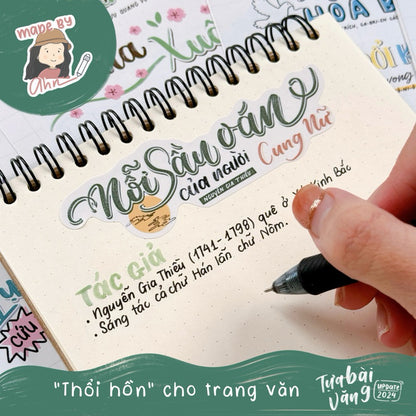 MADE BY
Ahn
Xuâ
HÒA B
Nỗi Sầu oán
CỦA NGƯỜI
Cung Nữ
NGUYỄN GIA THIỀU
TÁC GIẢ
• Nguyễn Gia Thiều (1741-1798) quê ở Kinh Bắc
• Sáng tác cả chữ Hán lẫn chữ Nôm.
CỨU
"Thổi hồn" cho trang văn
Tựa bài
văn
UPDATE
2024